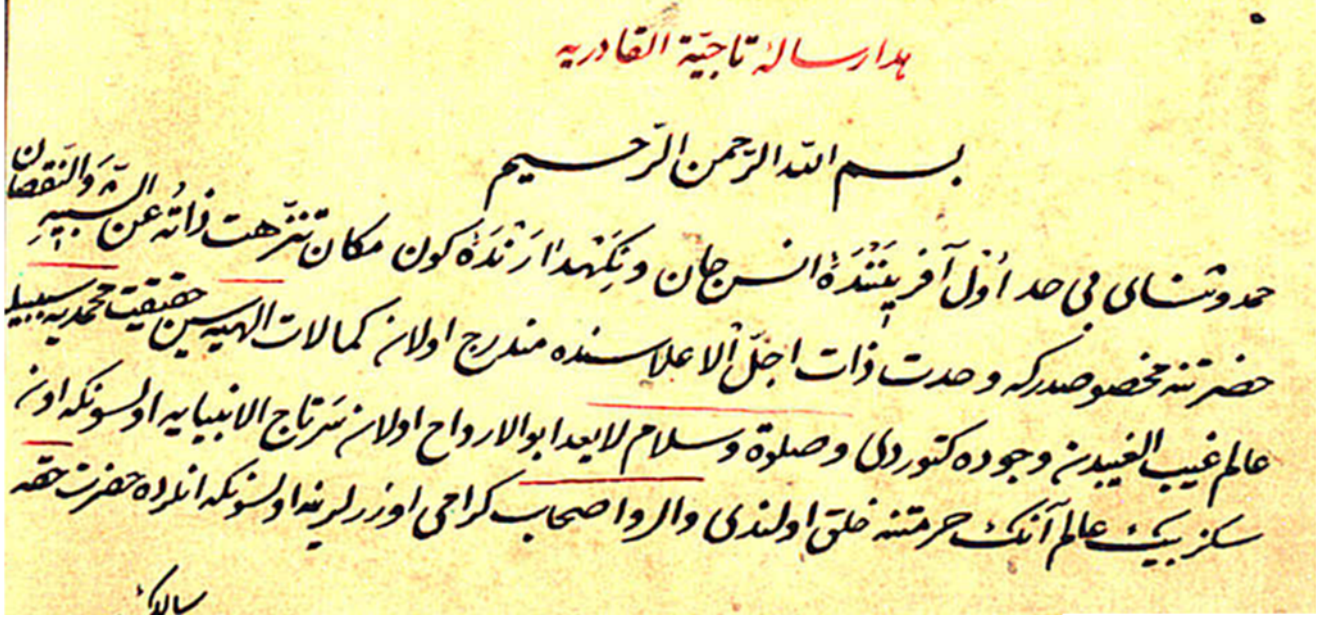 هذا رسالۀ تاجیّة القادریه
بسم الله الرّحمن الرّحیم
حمد و ثنای بی حد اوّل آفریننندۀ انس جان و نگهدارندۀ کون مکان تنزّهت ذاته عن الشبه والنّقصان
حضرتنه مخصوصدرکه وحدت ذات اجلّ الاعلاسنده مندرج اولان کمالات الهیه سین حقیقت محمدیه سببیله
عالم غیب الغیبدن وجوده کتوردی و صلوة وسلام لایعد ابوالارواح اولان سرتاج الانبیایه اولسونکه اون
سکز بیک عالم آنک حرمتنه خلق اولندی وال واصحاب کرامی اوزرلرینه اولسونکه انلرده حضرت حقه
سالک